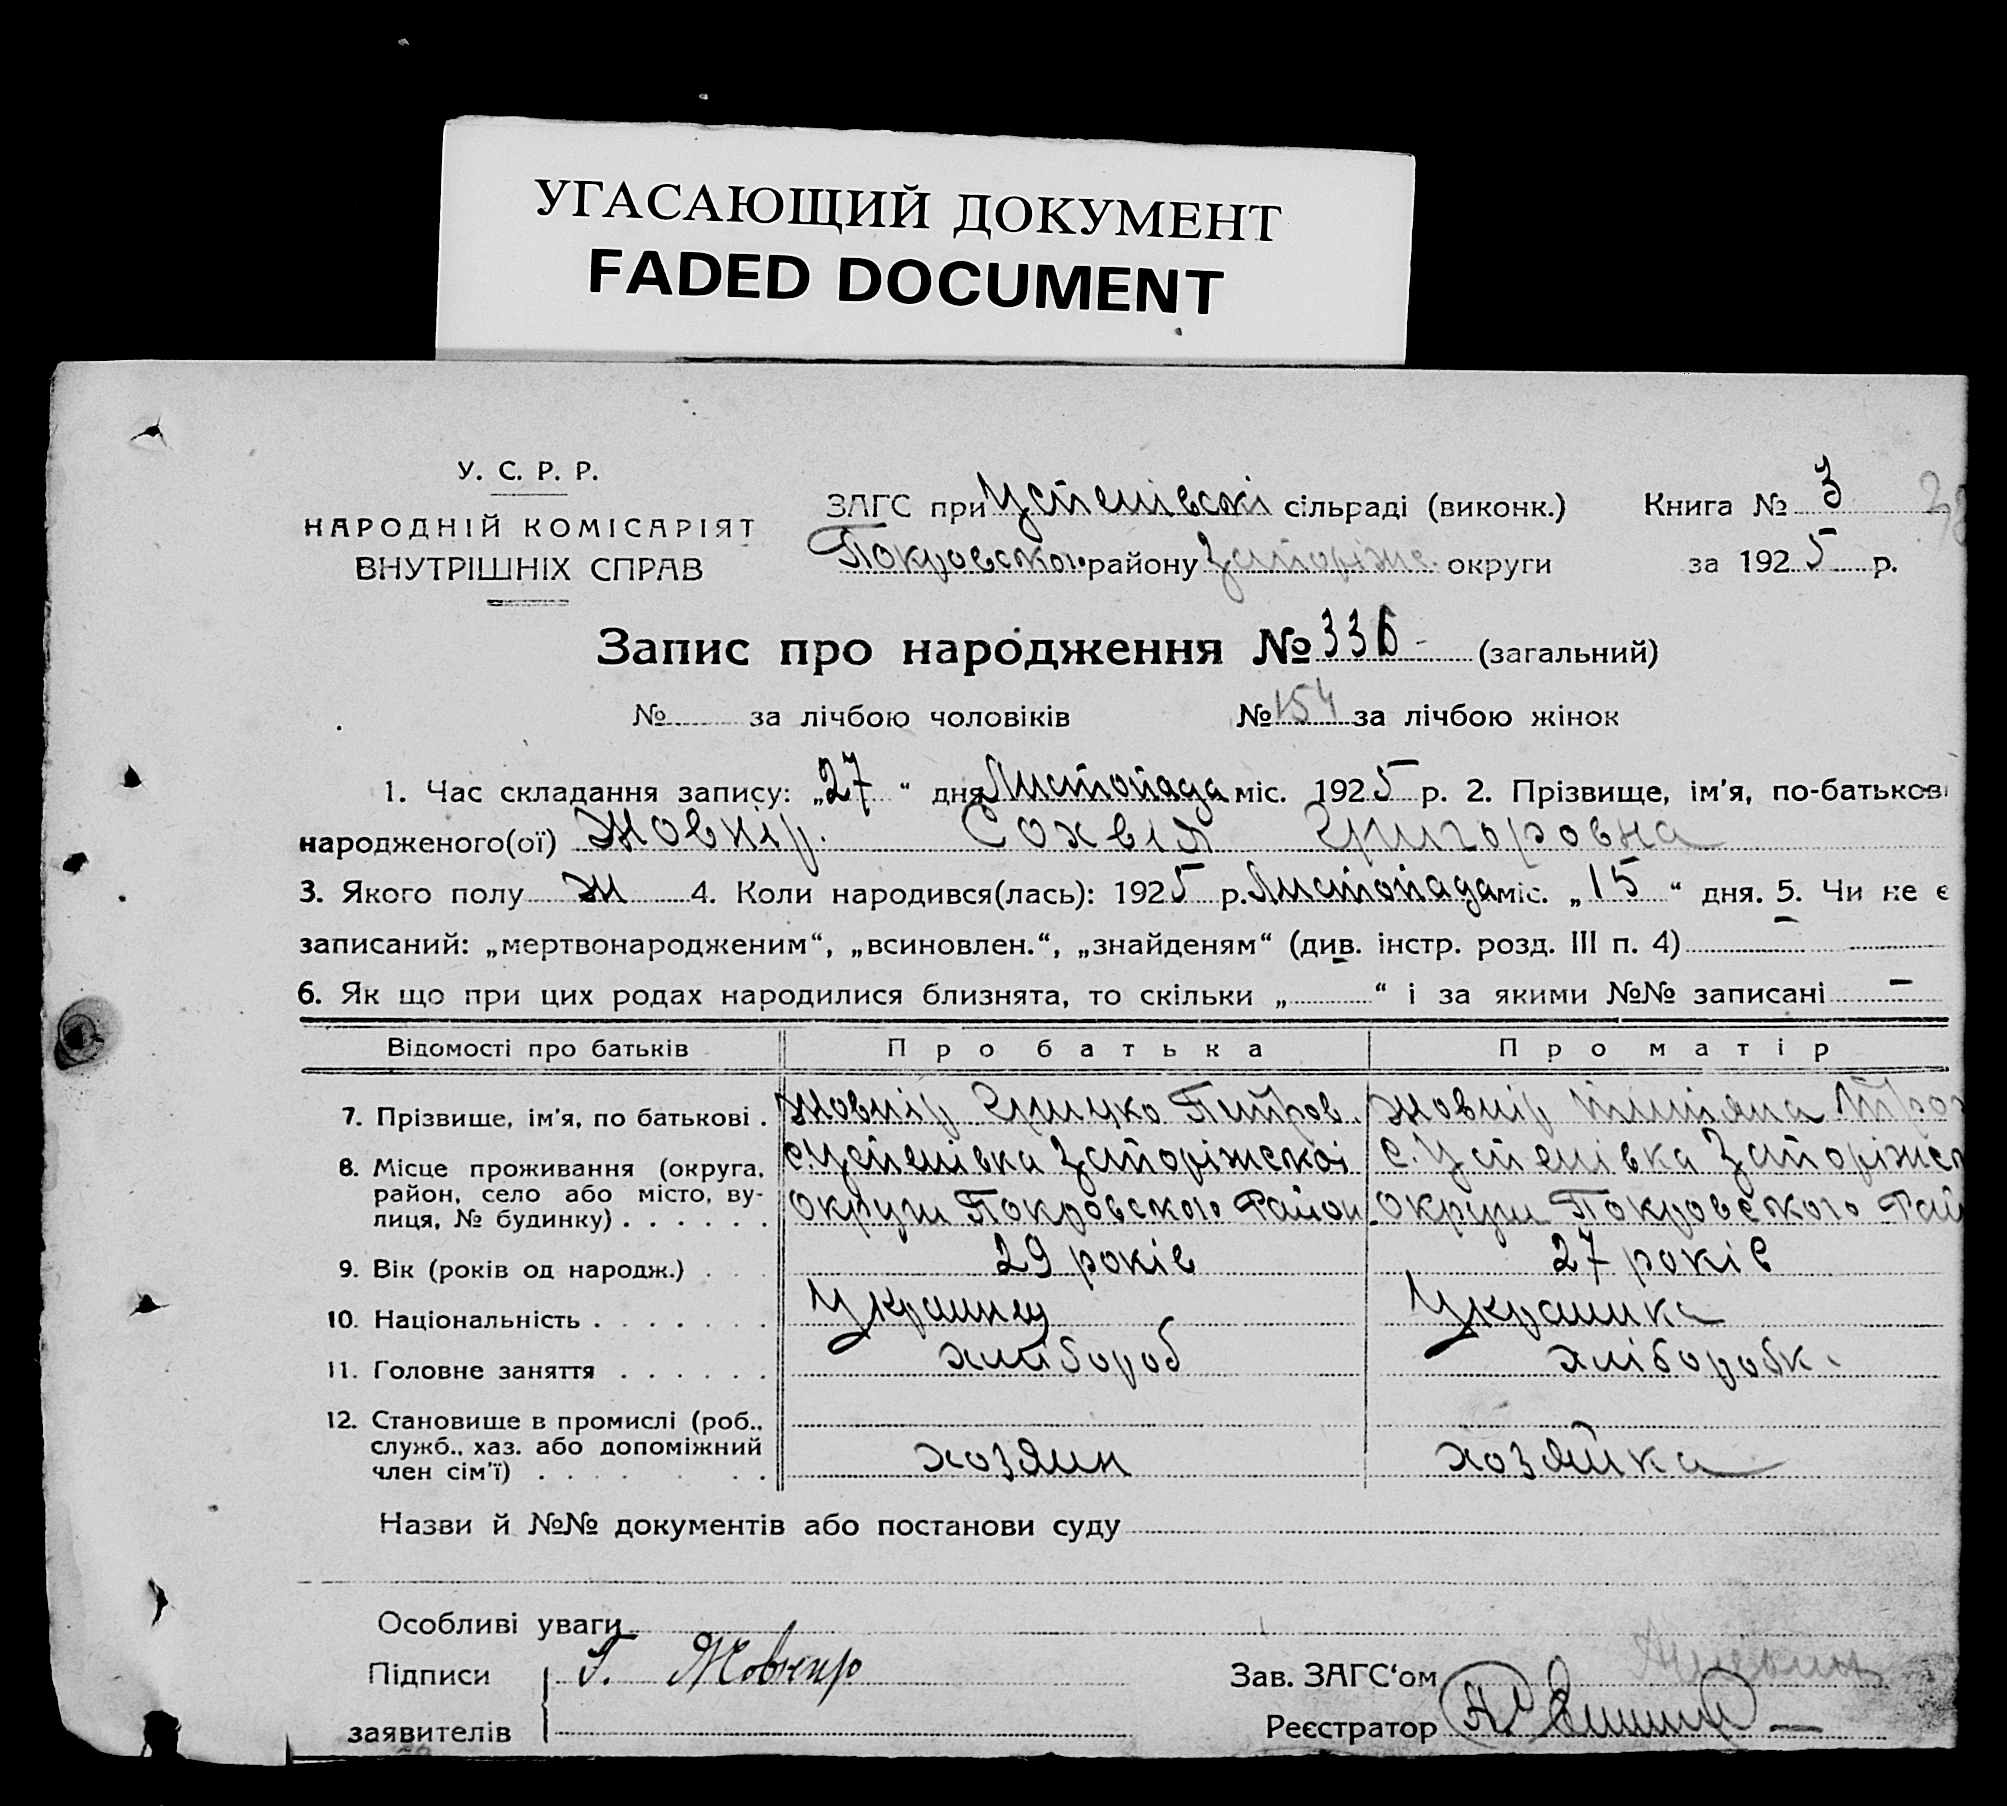 УГАСАЮЩИЙ ДОКУМЕНТ
FADED DOCUMENT
У. С. Р. Р.
НАРОДНІЙ КОМІСАРІЯТ
ВНУТРІШНІХ СПРАВ
ЗАГС при Успенівскі сільраді (виконк.) Книга № 3
Покровского району Запоріжс. округи за 1925 р.
Запис про народження № 336 (загальний)
№ за лічбою чоловіків № 154 за лічбою жінок
1. Час складання запису: „27“ дня Листопада міс. 1925 р. 2. Прізвище, ім'я, по-батькові
народженого(ої) Жовнір. Сохвія Григоровна
3. Якого полу Ж 4. Коли народився(лась): 1925 р. Листопада міс. „15“ дня. 5. Чи не є
записаний: „мертвонародженим“, „всиновлен.“, „знайденям“ (див. інстр. розд. III п. 4) –
6. Як що при цих родах народилися близнята, то скільки „–“ і за якими №№ записані –
Відомості про батьків Про батька Про матір
7. Прізвище, ім'я, по батькові . Жовнір Грицко Петров. Жовнір
8. Місце проживання (округа, с. Успенівка Запоріжскоі с. Успенівка Запоріжск
район, село або місто, ву-
лиця, № будинку) . . . . . . округи Покровского Район. округи Покровского Рай
9. Вік (років од народж.) . . . 29 років 27 років
10. Національність . . . . . . . Украинец Украинка
11. Головне заняття . . . . . . хлібороб хліборобк.
12. Становище в промислі (роб.,
служб., хаз. або допоміжний
член сім'ї) . . . . . . . хозяин хозяйка
Назви й №№ документів або постанови суду
Особливі уваги
Підписи Г. Жовнир Зав. ЗАГС'ом
заявителів Реєстратор